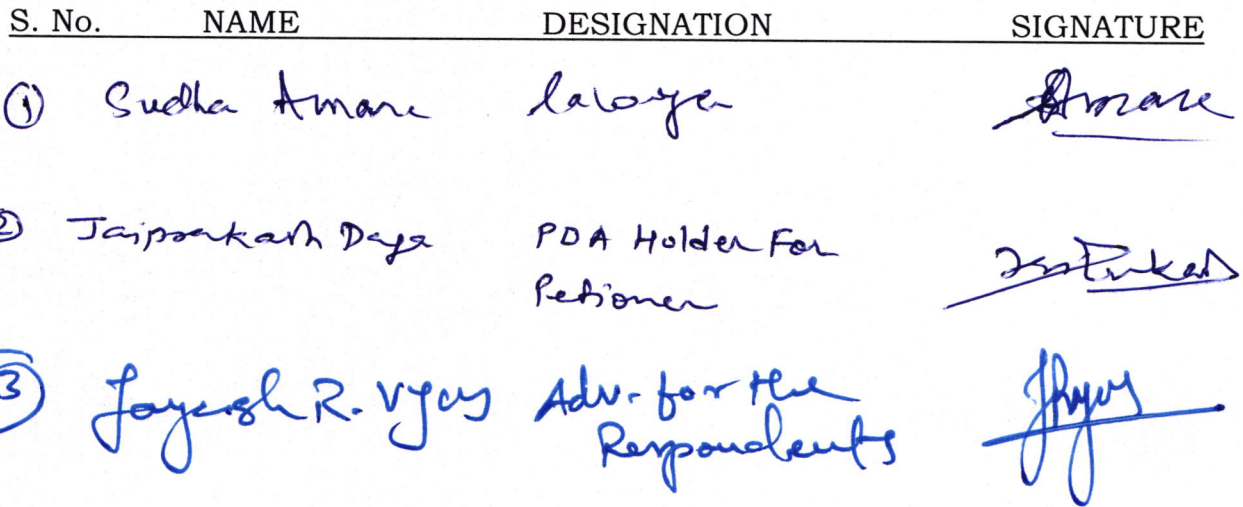 S. No. NAME DESIGNATION SIGNATURE
① Sudha Amare lawyer Amare
② Jaiprakash Daga POA Holder For
Petioner
③ Jayesh R. Vyas Adv. for the
Respondents